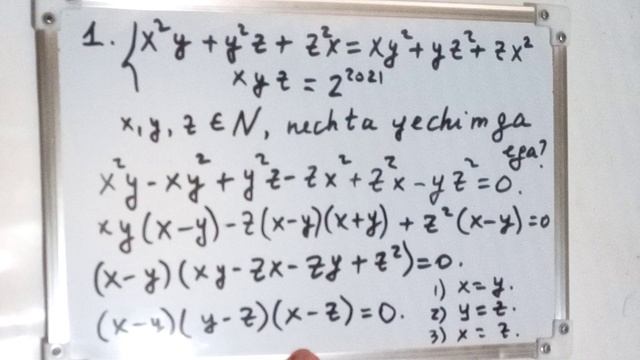 1. { x²y + y²z + z²x = xy² + yz² + zx²
xyz = 2²⁰²¹
x, y, z ∈ N, nechta yechimga
ega?
x²y - xy² + y²z - zx² + z²x - yz² = 0.
xy(x-y) - z(x-y)(x+y) + z²(x-y) = 0
(x-y)(xy - zx - zy + z²) = 0.
1) x = y.
(x-y)(y-z)(x-z) = 0.
2) y = z.
3) x = z.